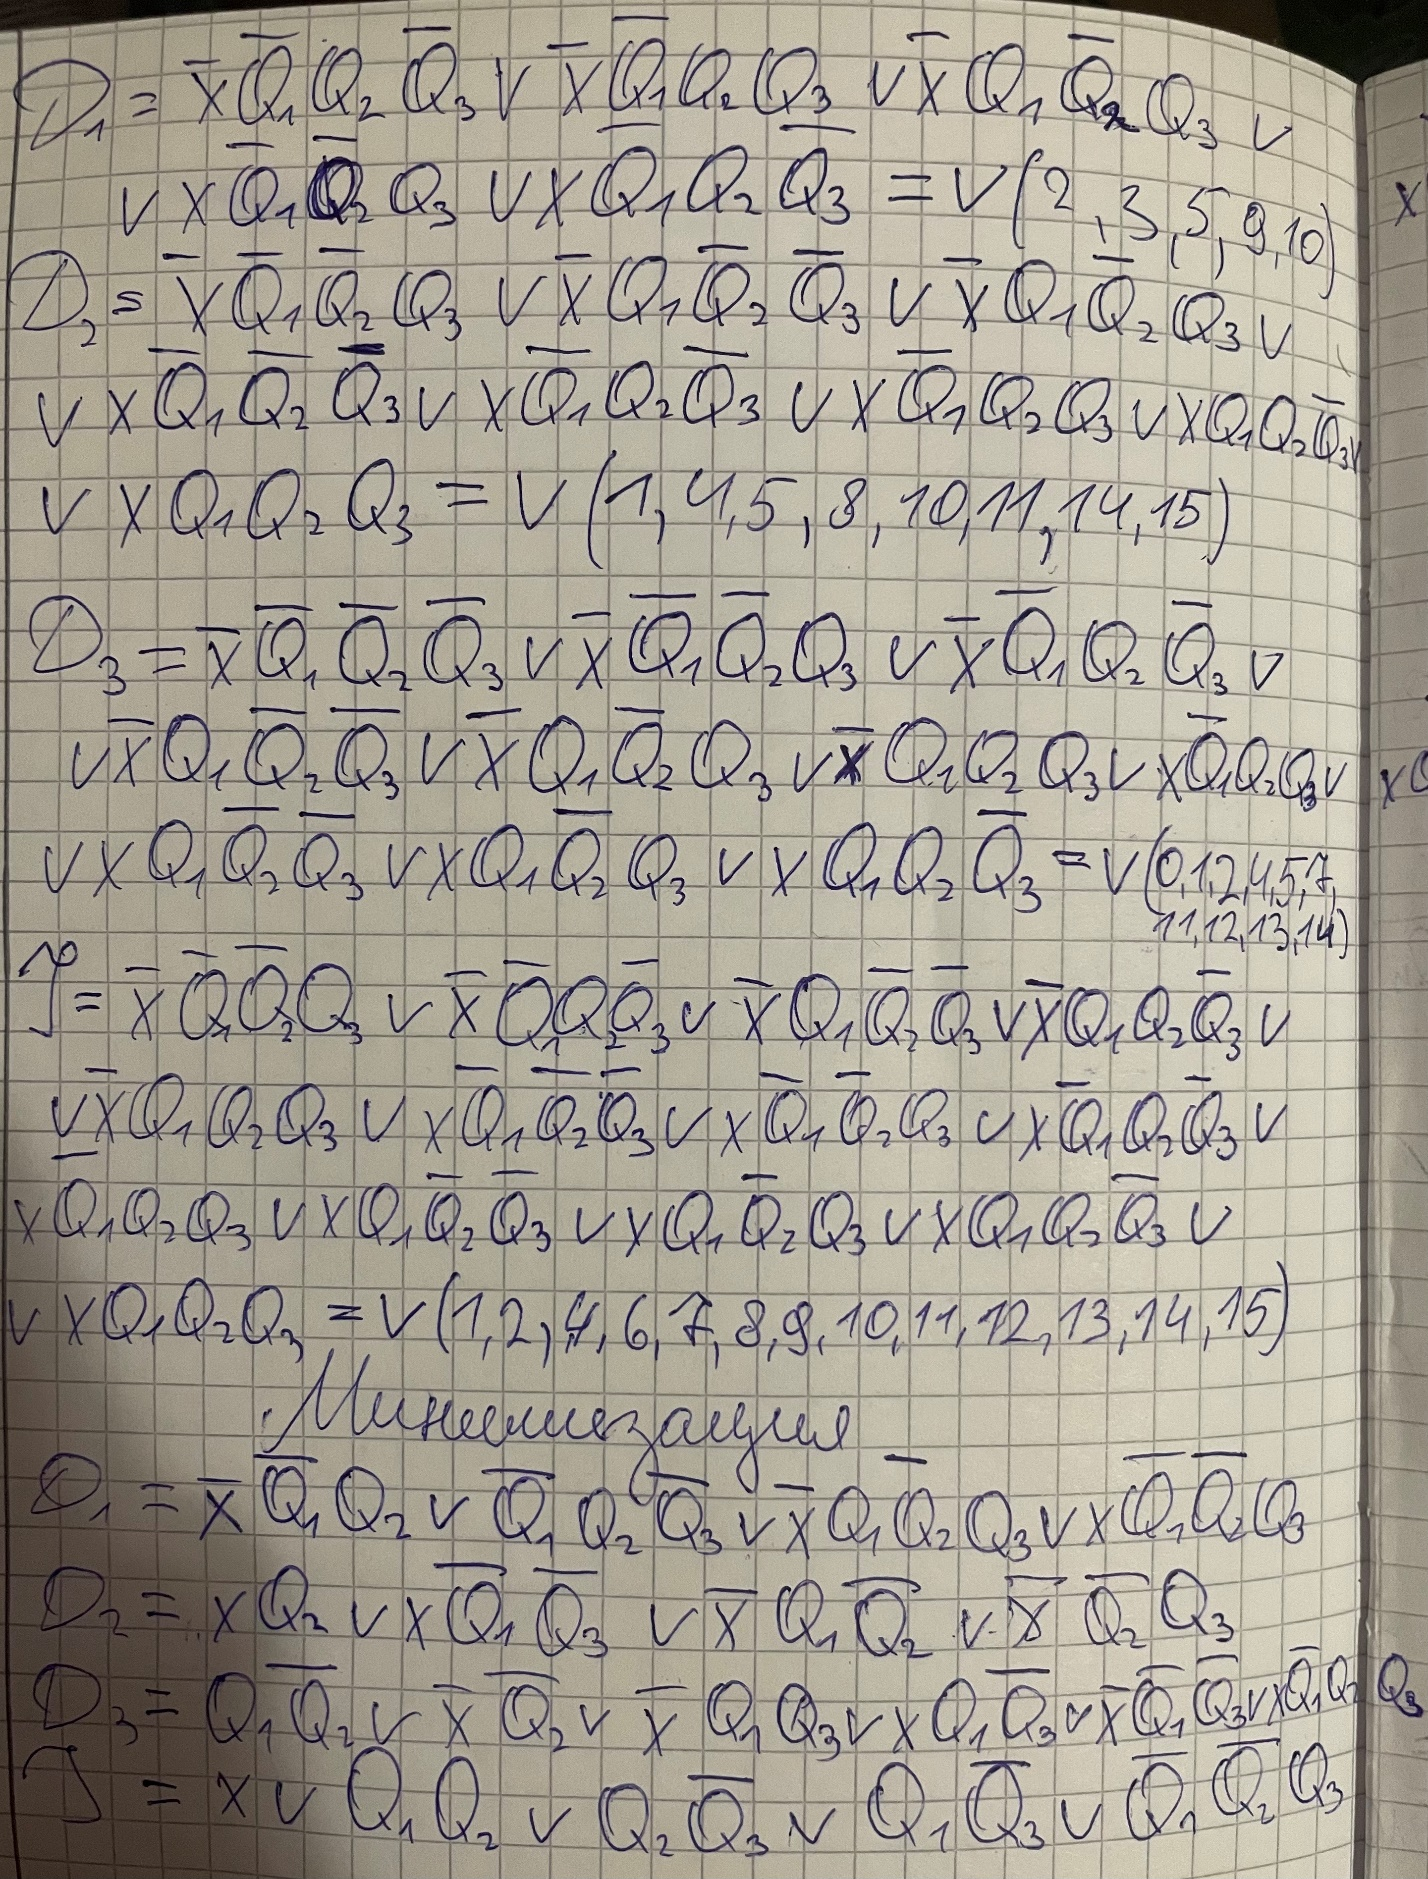 D₁ = x̄ Q̄₁ Q₂ Q̄₃ ∨ x̄ Q̄₁ Q₂ Q₃ ∨ x̄ Q₁ Q̄₂ Q₃ ∨
∨ x Q̄₁ Q̄₂ Q₃ ∨ x Q̄₁ Q₂ Q̄₃ = ∨(2, 3, 5, 9, 10)
D₂ = x̄ Q̄₁ Q̄₂ Q₃ ∨ x̄ Q₁ Q̄₂ Q̄₃ ∨ x̄ Q₁ Q̄₂ Q₃ ∨
∨ x Q̄₁ Q̄₂ Q̄₃ ∨ x Q̄₁ Q₂ Q̄₃ ∨ x Q̄₁ Q₂ Q₃ ∨ x Q₁ Q₂ Q̄₃ ∨
∨ x Q₁ Q₂ Q₃ = ∨(1, 4, 5, 8, 10, 11, 14, 15)
D₃ = x̄ Q̄₁ Q̄₂ Q̄₃ ∨ x̄ Q̄₁ Q̄₂ Q₃ ∨ x̄ Q̄₁ Q₂ Q̄₃ ∨
∨ x̄ Q₁ Q̄₂ Q̄₃ ∨ x̄ Q₁ Q̄₂ Q₃ ∨ x̄ Q₁ Q₂ Q₃ ∨ x Q̄₁ Q₂ Q₃ ∨
∨ x Q₁ Q̄₂ Q̄₃ ∨ x Q₁ Q̄₂ Q₃ ∨ x Q₁ Q₂ Q̄₃ = ∨(0,1,2,4,5,7,
11,12,13,14)
J = x̄ Q̄₁ Q̄₂ Q₃ ∨ x̄ Q̄₁ Q₂ Q̄₃ ∨ x̄ Q₁ Q̄₂ Q̄₃ ∨ x̄ Q₁ Q₂ Q̄₃ ∨
∨ x̄ Q₁ Q₂ Q₃ ∨ x Q̄₁ Q̄₂ Q̄₃ ∨ x Q̄₁ Q̄₂ Q₃ ∨ x Q̄₁ Q₂ Q̄₃ ∨
x Q̄₁ Q₂ Q₃ ∨ x Q₁ Q̄₂ Q̄₃ ∨ x Q₁ Q̄₂ Q₃ ∨ x Q₁ Q₂ Q̄₃ ∨
∨ x Q₁ Q₂ Q₃ = ∨(1, 2, 4, 6, 7, 8, 9, 10, 11, 12, 13, 14, 15)
Минимизация
D₁ = x̄ Q̄₁ Q₂ ∨ Q̄₁ Q₂ Q̄₃ ∨ x̄ Q₁ Q̄₂ Q₃ ∨ x Q̄₁ Q̄₂ Q₃
D₂ = x Q₂ ∨ x Q̄₁ Q̄₃ ∨ x̄ Q₁ Q̄₂ ∨ x̄ Q̄₂ Q₃
D₃ = Q₁ Q̄₂ ∨ x̄ Q̄₂ ∨ x̄ Q₁ Q₃ ∨ x Q₁ Q̄₃ ∨ x̄ Q̄₁ Q̄₃ ∨ x Q̄₁ Q₂ Q₃
J = x ∨ Q₁ Q₂ ∨ Q₂ Q̄₃ ∨ Q₁ Q̄₃ ∨ Q̄₁ Q̄₂ Q₃